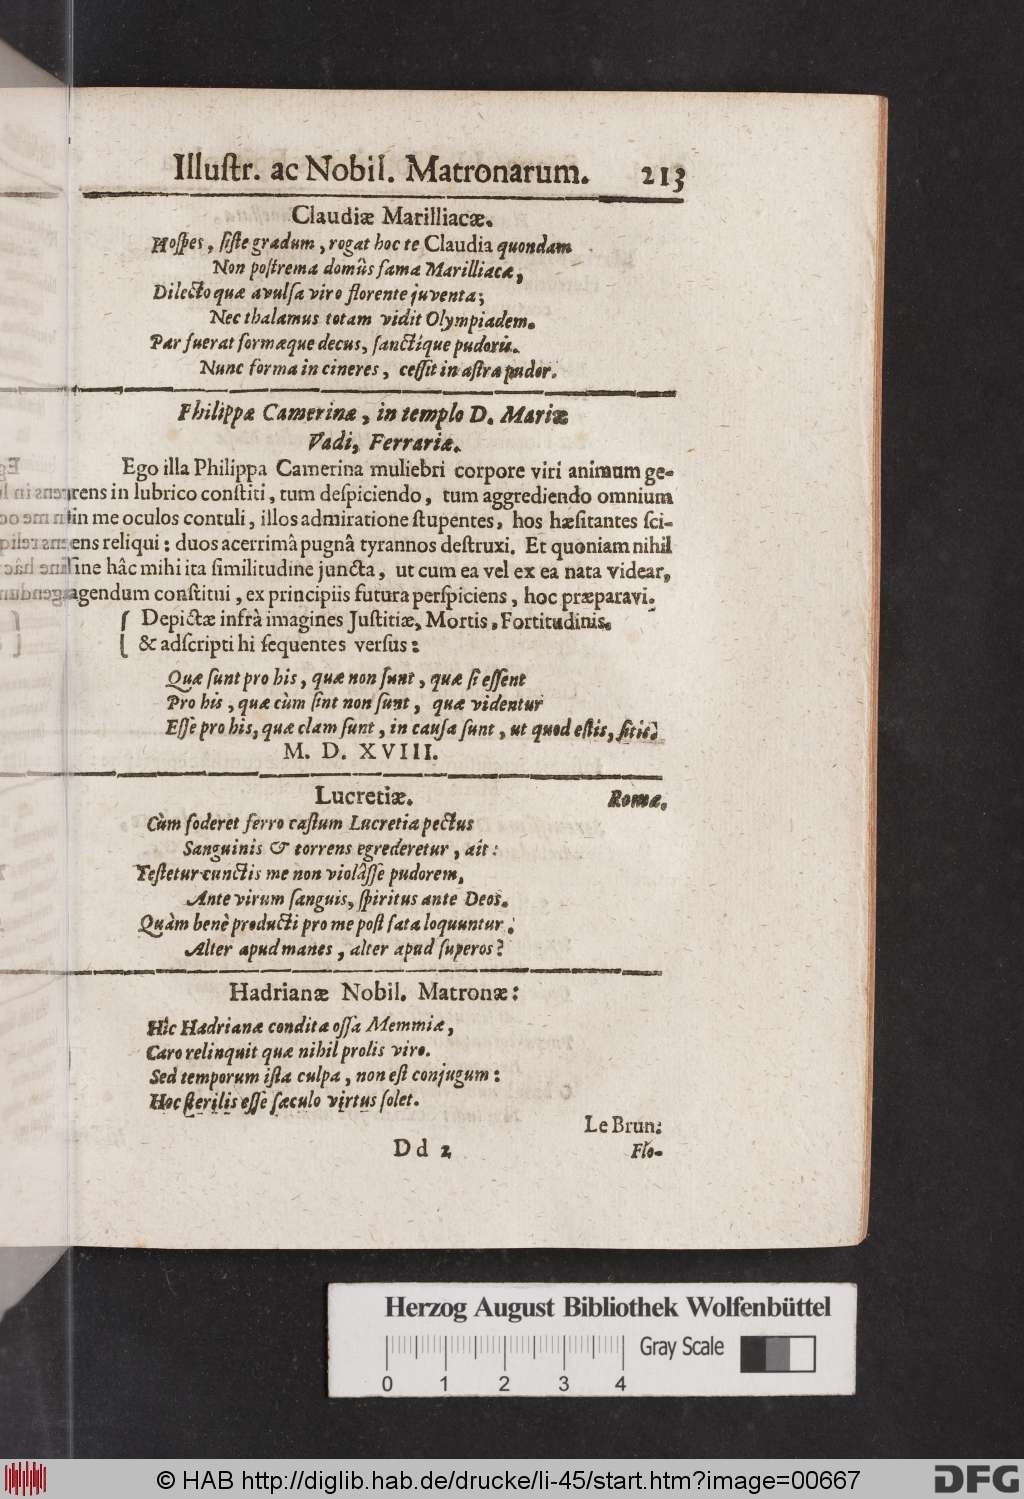 Illuſtr. ac Nobil. Matronarum. 213
Claudiæ Marilliacæ.
Hoſpes, ſiſte gradum, rogat hoc te Claudia quondam
Non poſtrema domûs fama Marilliacæ,
Dilecto quæ avulſa viro florente juventa;
Nec thalamus totam vidit Olympiadem.
Par fuerat formæque decus, ſanctíque pudoris.
Nunc forma in cineres, ceſſit in aſtra pudor.
Philippæ Camerinæ, in templo D. Mariæ
Vadi, Ferrariæ.
Ego illa Philippa Camerina muliebri corpore viri animum ge-
rens in lubrico conſtiti, tum deſpiciendo, tum aggrediendo omnium
in me oculos contuli, illos admiratione ſtupentes, hos hæſitantes ſci-
ens reliqui: duos acerrimâ pugnâ tyrannos deſtruxi. Et quoniam nihil
ſine hâc mihi ita ſimilitudine juncta, ut cum ea vel ex ea nata videar,
agendum conſtitui, ex principiis futura perſpiciens, hoc præparavi.
{ Depictæ infrà imagines Juſtitiæ, Mortis, Fortitudinis.
& adſcripti hi ſequentes verſus:
Quæ ſunt pro his, quæ non ſunt, quæ ſi eſſent
Pro his, quæ cùm ſint non ſunt, quæ videntur
Eſſe pro his, quæ clam ſunt, in cauſa ſunt, ut quod eſtis, ſitis.
M. D. XVIII.
Lucretiæ. Romæ.
Cùm foderet ferro caſtum Lucretia pectus
Sanguinis & torrens egrederetur, ait:
Teſtetur cunctis me non violâſſe pudorem,
Ante virum ſanguis, ſpiritus ante Deos.
Quàm benè producti pro me poſt fata loquuntur:
Alter apud manes, alter apud ſuperos?
Hadrianæ Nobil. Matronæ:
Hîc Hadrianæ condita oſſa Memmiæ,
Caro relinquit quæ nihil prolis viro.
Sed temporum iſta culpa, non eſt conjugum:
Hoc ſterilis eſſe ſæculo virtus ſolet.
Le Brun:
Dd 2 Flo-
Herzog August Bibliothek Wolfenbüttel
Gray Scale
0 1 2 3 4
© HAB http://diglib.hab.de/drucke/li-45/start.htm?image=00667
DFG